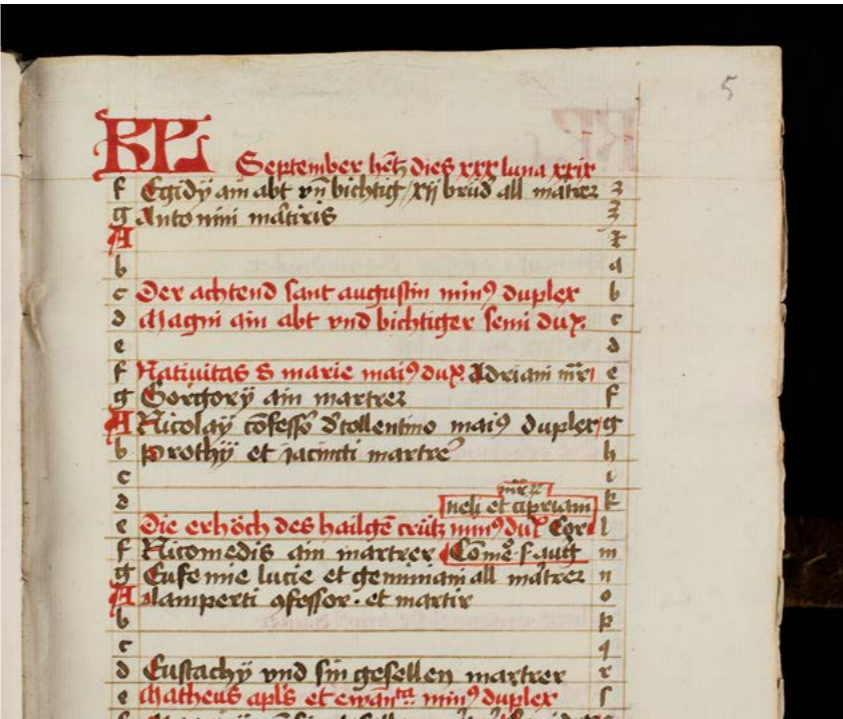 5
KL September het dies xxx luna xxix
f Egidÿ ain abt vn bichtig xij brud all martrer z
g Antonini martiris z
A
b a
c Der achtend sant augustin min9 duplex b
d Magni ain abt vnd bichtiger semi dux. c
e d
f Natiuitas S marie mai9 dux. Adriani mr e
g Gorgorÿ ain martrer f
A Nicolaÿ cofesso d tollentino mai9 duplex g
b Prothÿ et jacincti martre h
c i
d neli et cipriani k
e Die erhöch des hailge crütz min9 dux Cor l
f Nicomedis ain martrer Come s aug m
g Eufemie lucie et geminiani all martrer n
A lamperti 9fessor. et martir o
b p
c q
d Eustachÿ vnd sin gesellen martrer r
e Matheus apls et ewan min9 duplex s